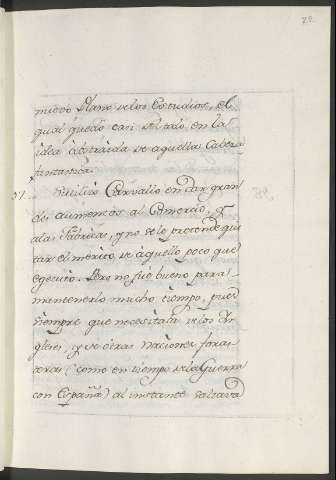 28.
nuovo Plano de los Estudios, el
qual quedò casi
idea abstraida de aquella Cabeza
fantastica.
51. Carvallo en dar gran
des aumentos al Comercio, y
a las Fabricas, y no se le pretende qui
tar el merito de aquello poco que
egecutò. Pero no fuè bueno para
mantenerlo mucho tiempo, pues
siempre que necesitaba de los In
gleses, y de otras Naciones foras
teras (como en tiempo de la Guerra
con España) al instante